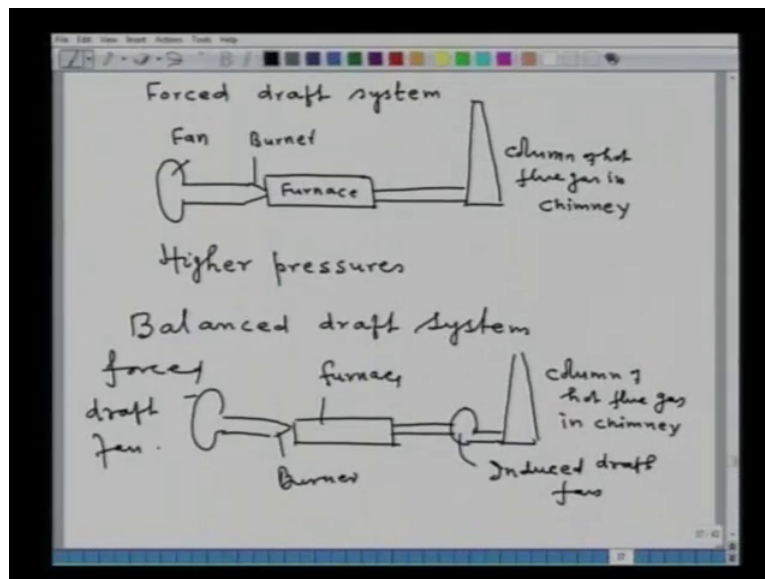 File Edit View Insert Actions Tools Help
Forced draft system
Fan
Burner
Furnace
column of hot
flue gas in
chimney
Higher pressures
Balanced draft system
forced
draft
fan.
furnace
Burner
Induced draft
fan
column of
hot flue gas
in chimney
37/42
37